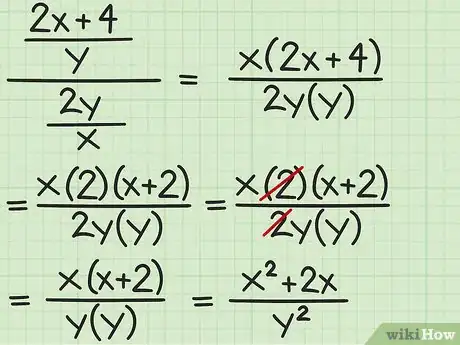 (2x+4)/y / (2y/x) = x(2x+4)/2y(y)
= x(2)(x+2)/2y(y) = x(2)(x+2)/2y(y)
= x(x+2)/y(y) = x²+2x/y²
wikiHow